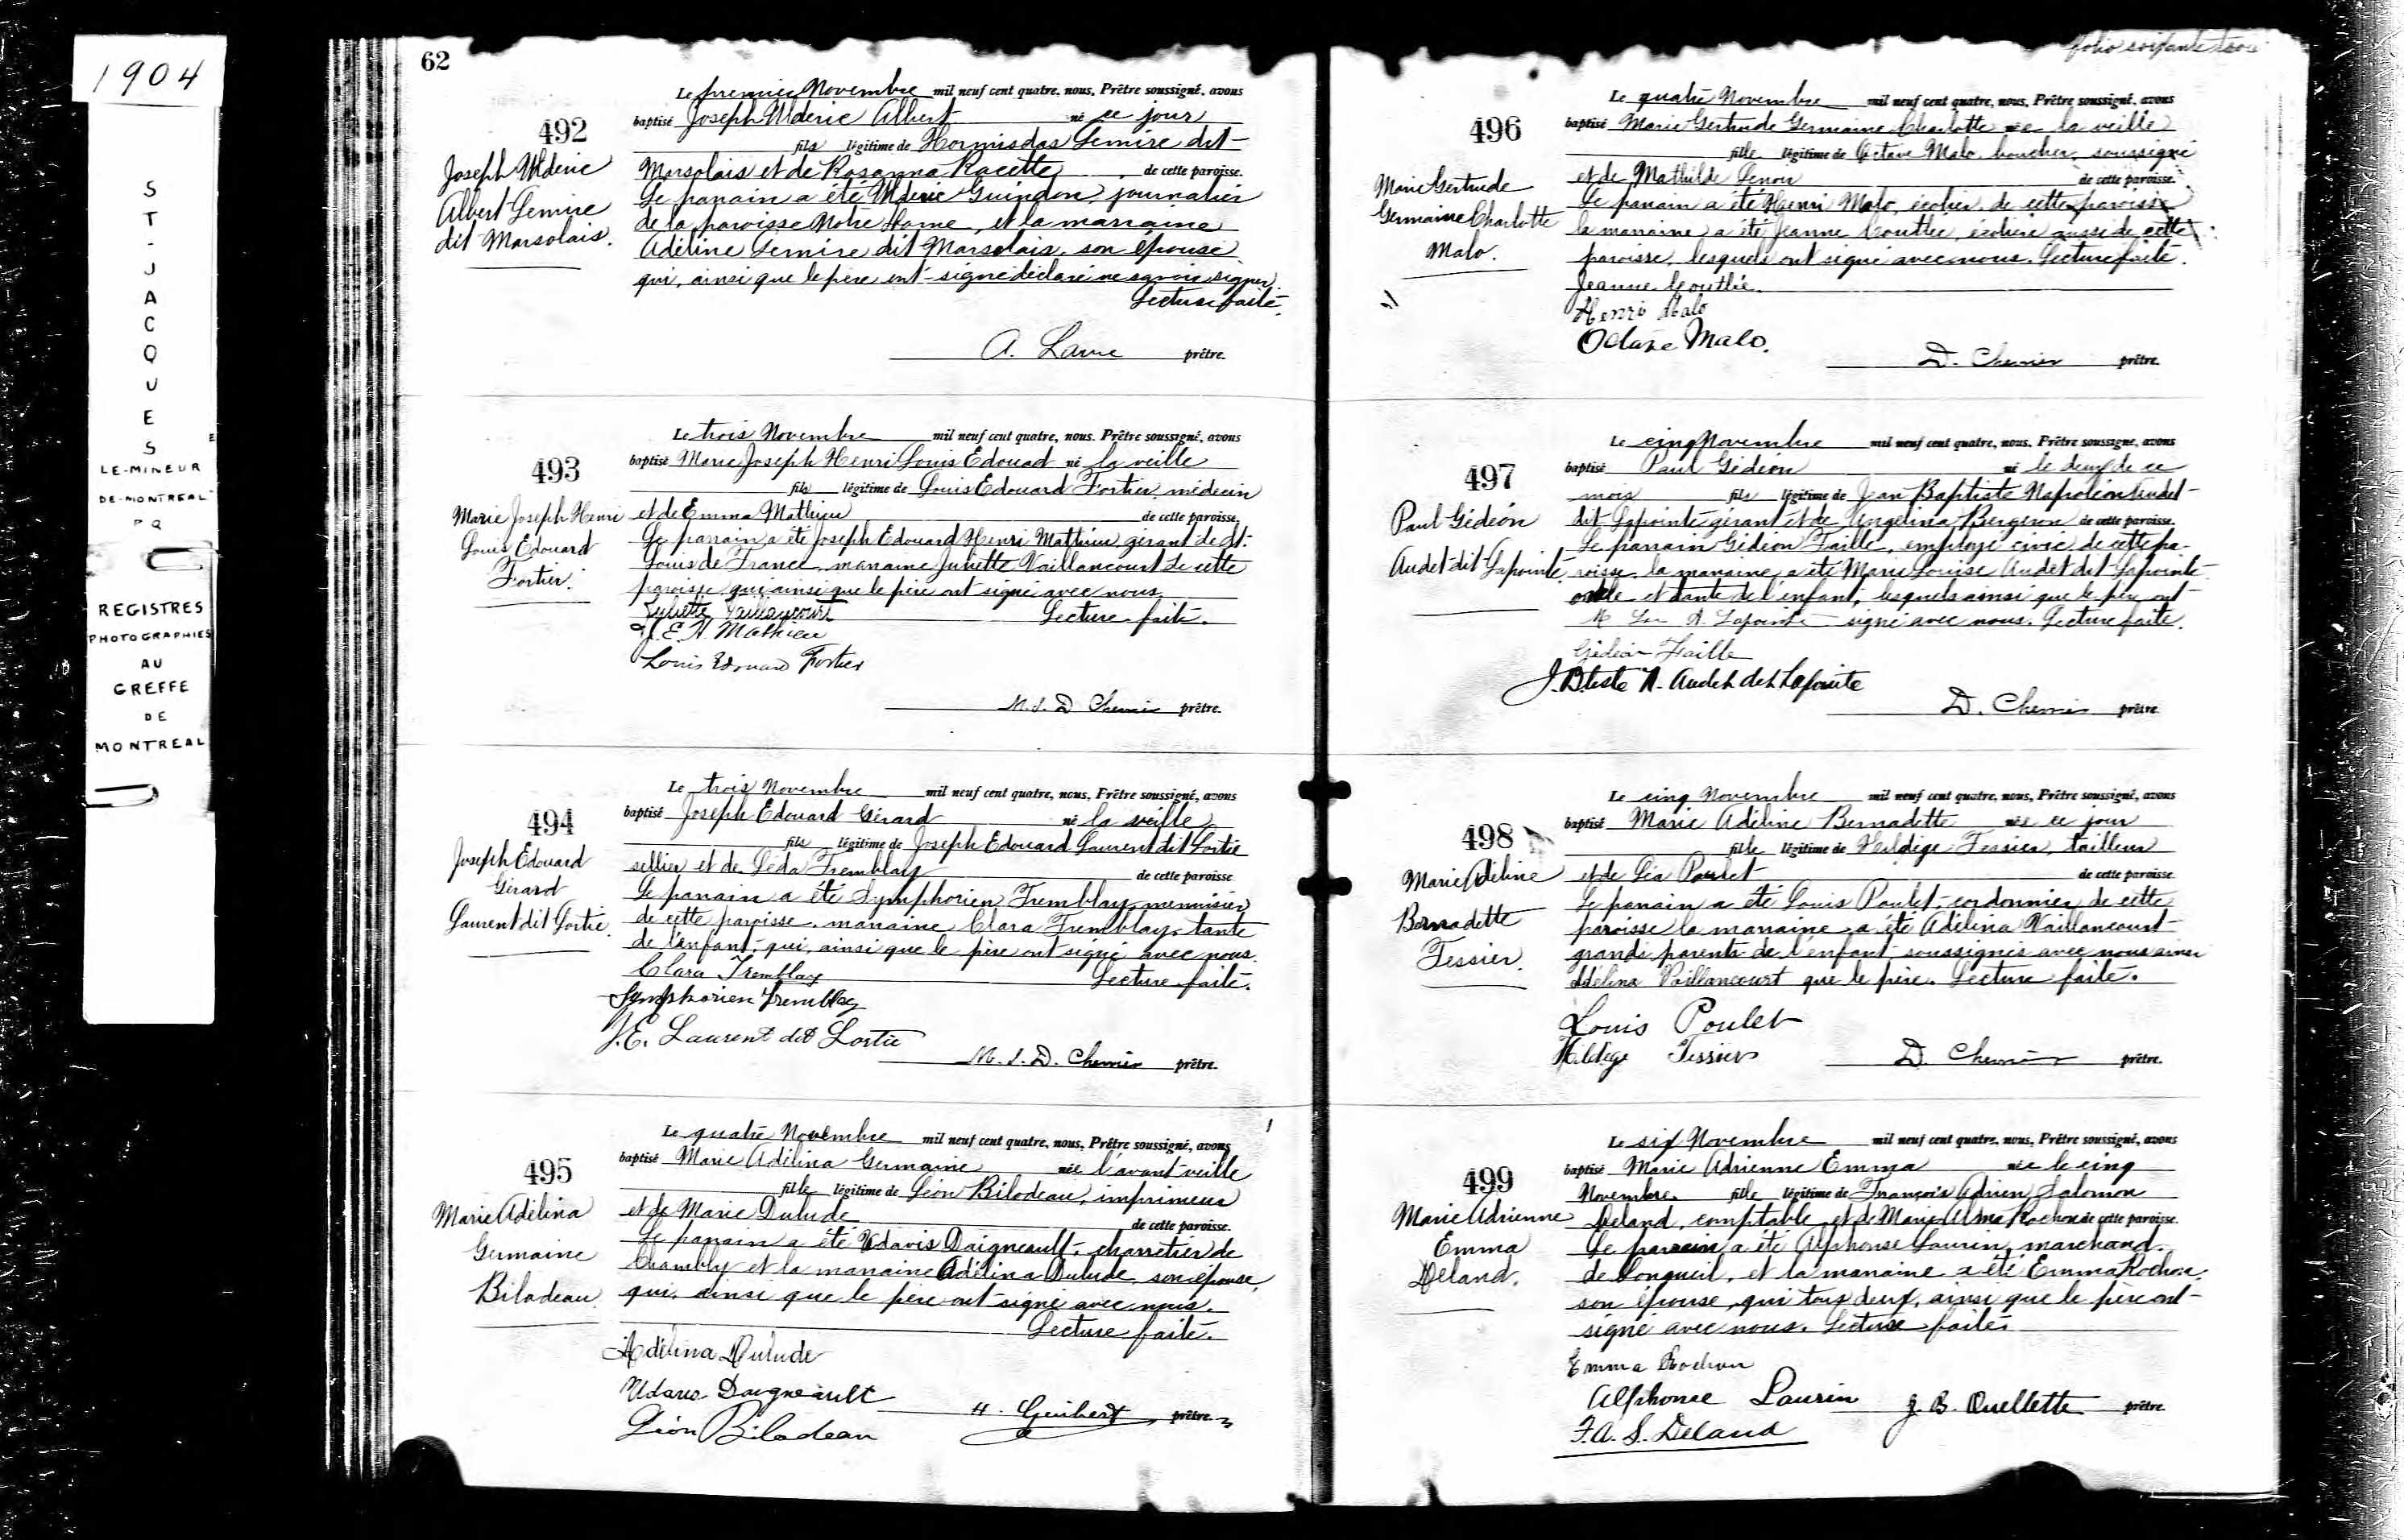 1904
S
T
-
J
A
C
Q
U
E
S
LE-MINEUR
DE-MONTREAL
P Q
REGISTRES
PHOTOGRAPHIES
AU
GREFFE
DE
MONTREAL
62
Le premier Novembre mil neuf cent quatre, nous, Prêtre soussigné, avons
492
baptisé Joseph Uldéric Albert né ce jour
fils légitime de Hormisdas Lemire dit
Joseph Uldéric
Albert Lemire
dit Marsolais.
Marsolais et de Rosanna Racette de cette paroisse.
Le parrain a été Uldéric Guindon journalier
de la paroisse Notre Dame, et la marraine
Adéline Lemire dit Marsolais, son épouse
qui, ainsi que le père ont signé déclaré ne savoir signer.
Lecture faite.
A. prêtre.
Le trois Novembre mil neuf cent quatre, nous, Prêtre soussigné, avons
493
baptisé Marie Joseph Henri Louis Edouad né la veille
fils légitime de Louis Edouard Fortier, médecin
Marie Joseph Henri
Louis Edouard
Fortier.
et de Emma Mathieu de cette paroisse.
Le parrain a été Joseph Edouard Henri Mathieu, gérant de St.
Louis de France, marraine Juliette Vaillancourt de cette
paroisse qui ainsi que le père ont signé avec nous.
Juliette Vaillancourt Lecture faite.
J. E. H. Mathieu
Louis Edouard Fortier
M. S. D. Chemin prêtre.
Le trois Novembre mil neuf cent quatre, nous, Prêtre soussigné, avons
494
baptisé Joseph Edouard Gérard né la veille
fils légitime de Joseph Edouard Laurent dit Lortie
Joseph Edouard
Gérard
Laurent dit Lortie.
sellier et de Léda Tremblay de cette paroisse
Le parrain a été Symphorien Tremblay menuisier
de cette paroisse, marraine Clara Tremblay, tante
de l'enfant, qui, ainsi que le père ont signé avec nous.
Clara Tremblay Lecture faite.
Symphorien Tremblay
J. E. Laurent dit Lortie
M. S. D. Chemin prêtre.
Le quatre Novembre mil neuf cent quatre, nous, Prêtre soussigné, avons
495
baptisé Marie Adélina Germaine née l'avant-veille
fille légitime de Léon Bilodeau, imprimeur
Marie Adélina
Germaine
Bilodeau.
et de Marie Dulude de cette paroisse.
Le parrain a été Daigneault, charretier de
Chambly et la marraine Adélina Dulude, son épouse,
qui, ainsi que le père ont signé avec nous.
Lecture faite.
Adélina Dulude
Daigneault
Léon Bilodeau
H. Guibert prêtre.
folio soixante trois
Le quatre Novembre mil neuf cent quatre, nous, Prêtre soussigné, avons
496
baptisé Marie Gertrude Germaine Charlotte née la veille
fille légitime de Octave Malo, boucher, soussigné
Marie Gertrude
Germaine Charlotte
Malo.
et de Mathilde Lenoir de cette paroisse.
Le parrain a été Henri Malo, écolier, de cette paroisse
la marraine a été Jeanne Gouthée, écolière aussi de cette
paroisse, lesquels ont signé avec nous. Lecture faite.
Jeanne
Henri Malo
Octave Malo.
D. Chemin prêtre.
Le cinq Novembre mil neuf cent quatre, nous, Prêtre soussigné, avons
497
baptisé Paul Gédéon né le deux de ce
mois fils légitime de Jean Baptiste Napoléon Audet
Paul Gédéon
Audet dit Lapointe.
dit Lapointe gérant et de Angelina Bergeron de cette paroisse.
Le parrain Gédéon Faille, employé civic de cette pa-
roisse, la marraine a été Marie Louise Audet dit Lapointe
oncle et tante de l'enfant, lesquels ainsi que le père ont
A. Lapointe signé avec nous. Lecture faite.
Gédéon Faille
J. Bte N. Audet dit Lapointe
D. Chemin prêtre
Le cinq Novembre mil neuf cent quatre, nous, Prêtre soussigné, avons
498
baptisé Marie Adéline Bernadette née ce jour
fille légitime de Hildège Tessier, tailleur
Marie Adéline
Bernadette
Tessier.
et de Léa Poulet de cette paroisse
Le parrain a été Louis Poulet, cordonnier de cette
paroisse la marraine a été Adélina Vaillancourt
grands parents de l'enfant soussignés avec nous ainsi
Adélina Vaillancourt que le père. Lecture faite.
Louis Poulet
Hildège Tessier
D. Chemin prêtre.
Le six Novembre mil neuf cent quatre, nous, Prêtre soussigné, avons
499
baptisé Marie Adrienne Emma née le cinq
Novembre, fille légitime de François Adrien Salomon
Marie Adrienne
Emma
Deland.
Deland, comptable et de Marie Alma Rochon de cette paroisse.
Le parrain a été Alphonse Laurin, marchand.
de Longueil, et la marraine a été Emma Rochon,
son épouse, qui tous deux, ainsi que le père ont
signé avec nous. Lecture faite.
Emma Rochon
Alphonse Laurin
J. B. Ouellette prêtre
F. A. S. Deland